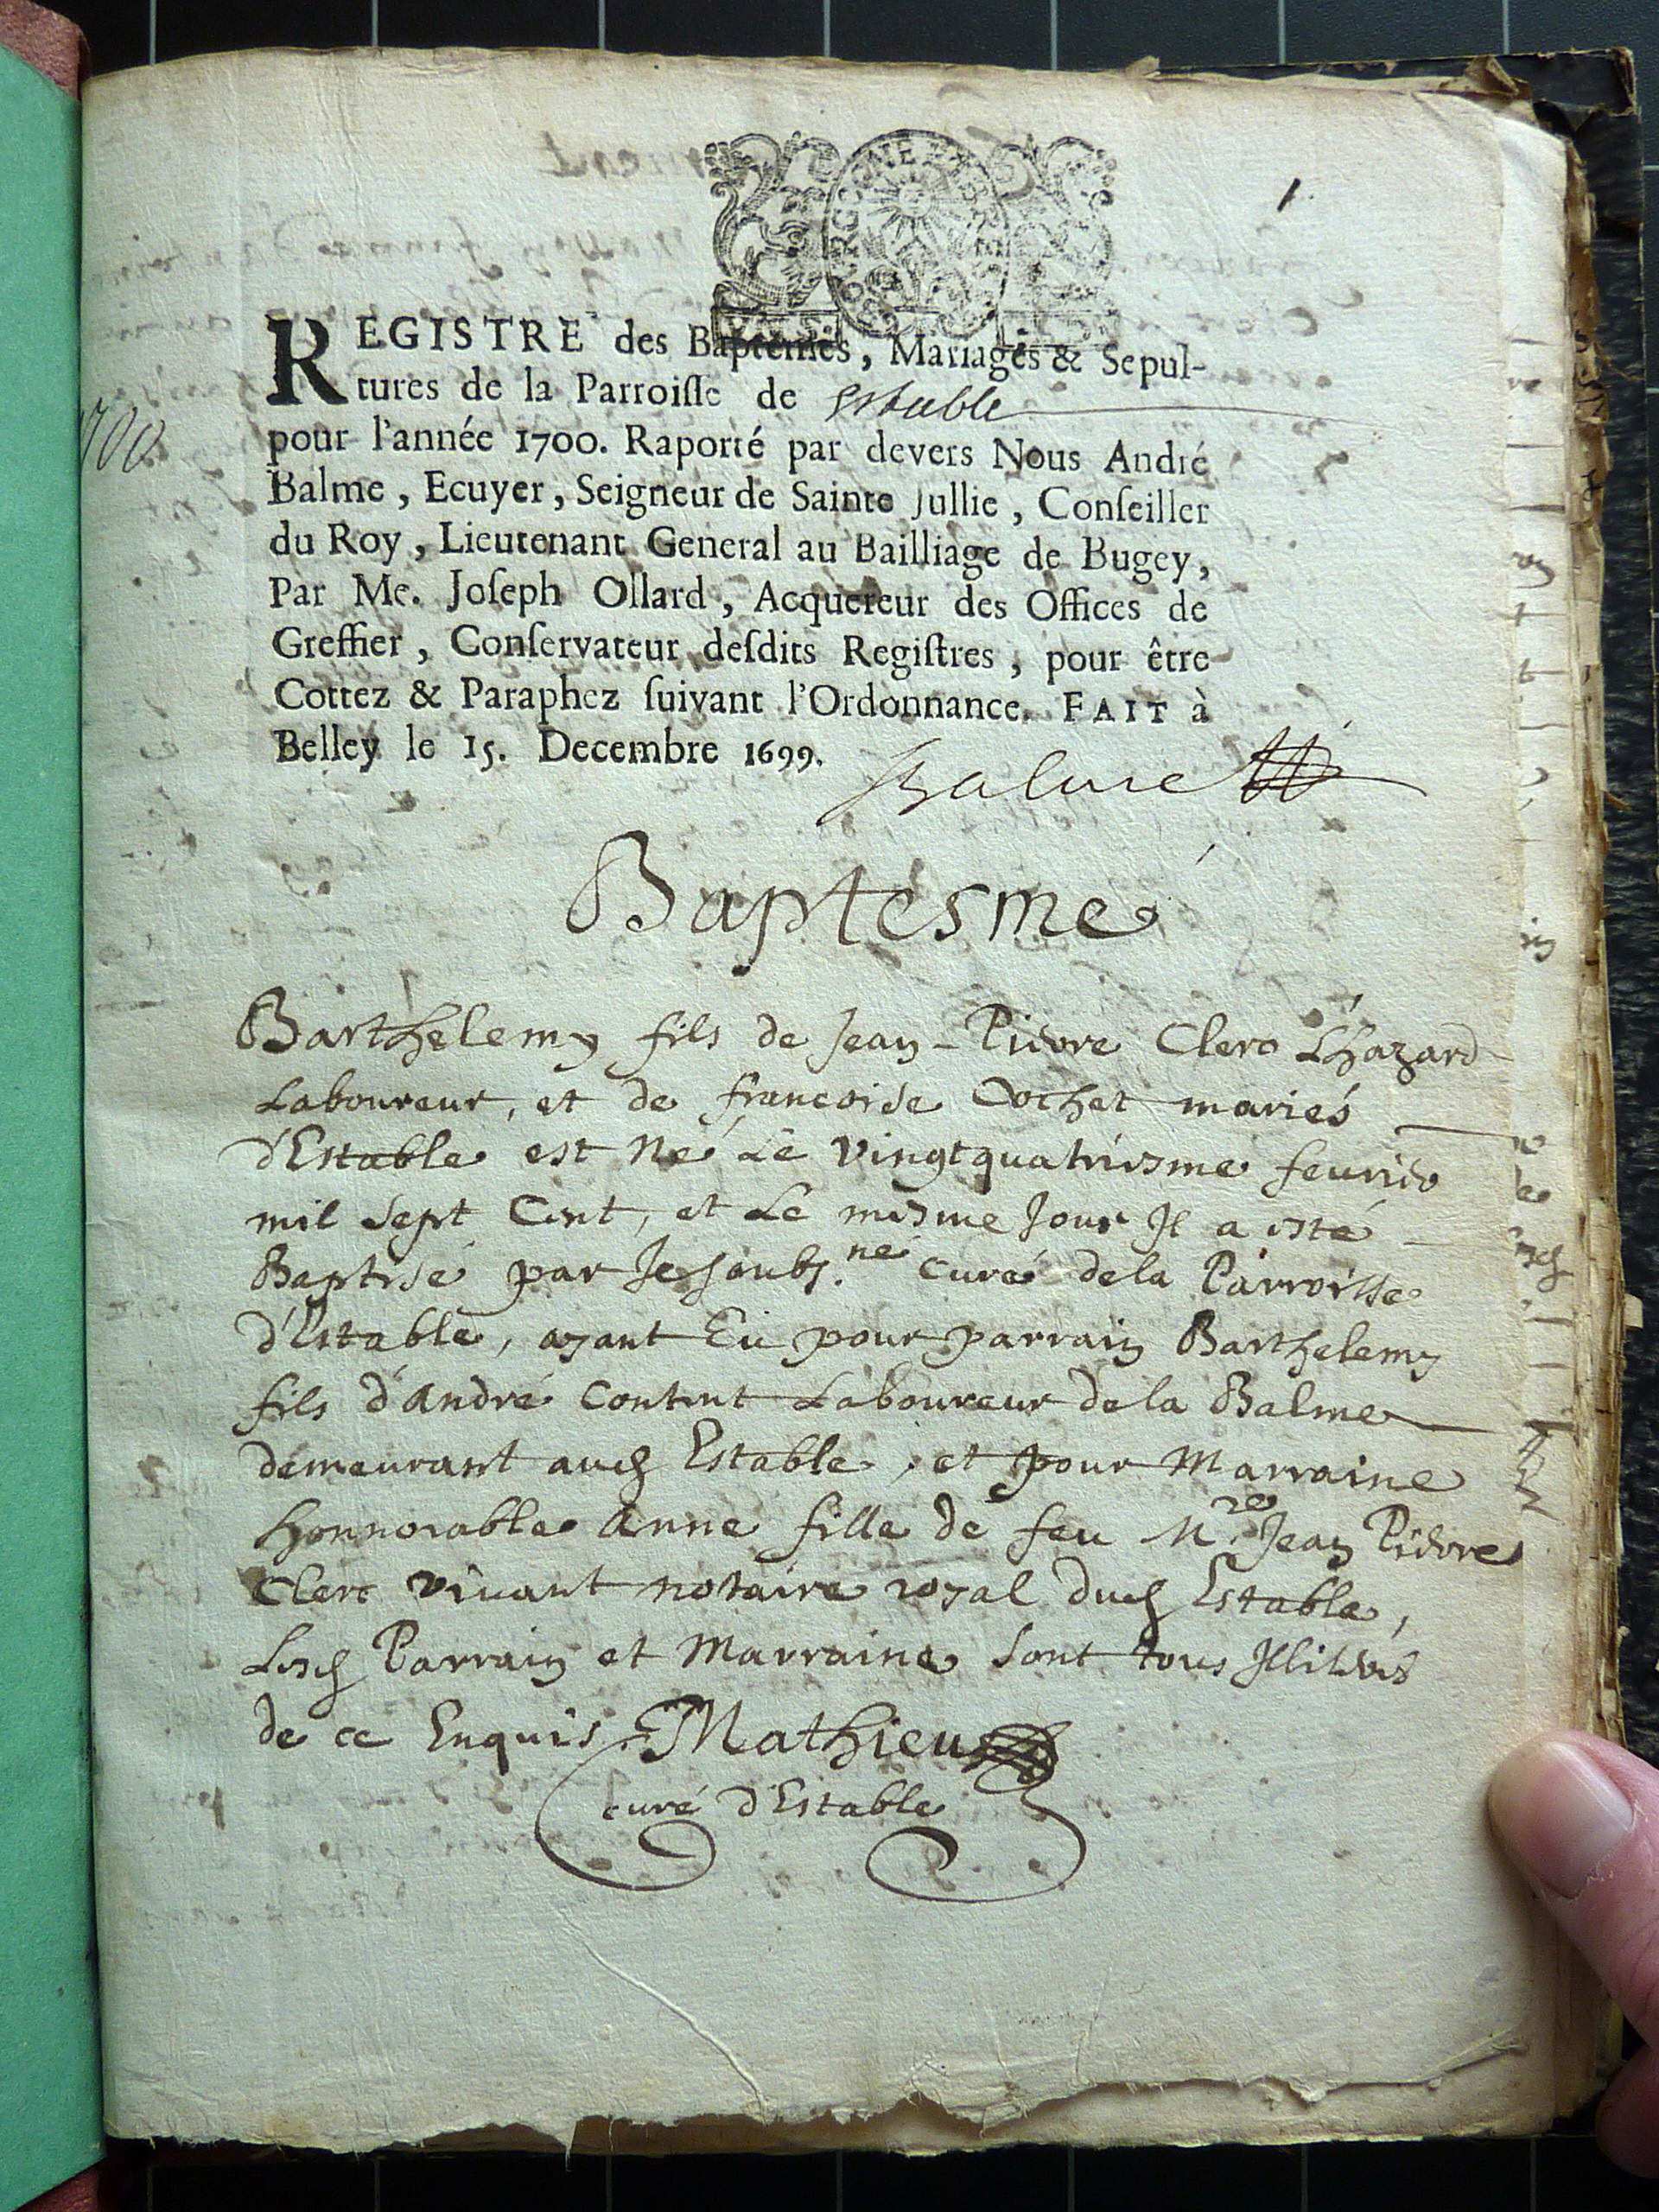 1.
REGISTRE des Baptemes, Mariages & Sepul-
tures de la Parroiſſe de estable
1700
pour l'année 1700. Raporté par devers Nous André
Balme, Ecuyer, Seigneur de Sainte Jullie, Conſeiller
du Roy, Lieutenant General au Bailliage de Bugey,
Par Me. Joſeph Ollard, Acquereur des Offices de
Greffier, Conſervateur deſdits Regiſtres, pour être
Cottez & Paraphez ſuivant l'Ordonnance. FAIT à
Belley le 15. Decembre 1699.
Balme
Baptesme
Barthelemy fils de Jean-Pierre Clerc Lhazard
Laboureur, et de francoise Cochet mariés
d'Estable est né Le vingtquatriesme feurier
mil sept Cent, et Le mesme Jour Jl a esté
Baptisé par Je soubs.né curé dela Parroisse
d'Estable, ayant Eu pour parrain Barthelemy
fils d'andré Content Laboureur dela Balme
demeurant aud Estable, et pour Marraine
honnorable anne fille de feu M.re Jean Pierre
Clerc viuant notaire royal dud Estable,
Lesd Parrain et Marraine sont tous Jlliteres
de ce Enquis. Mathieu
curé d'Estable